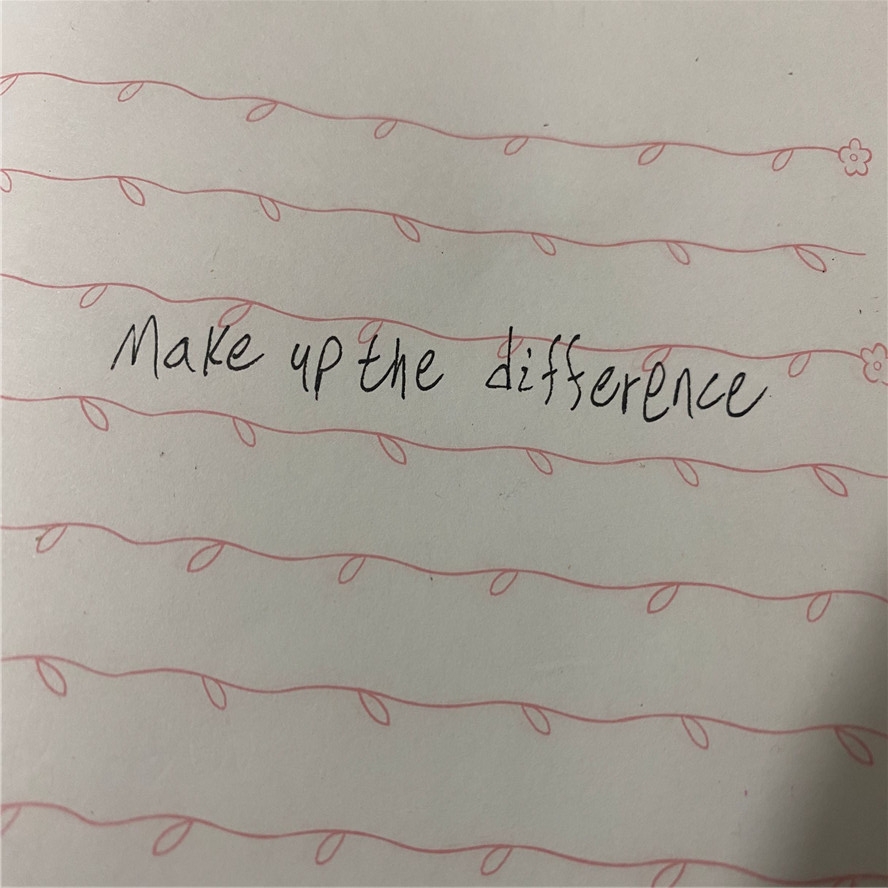 Make up the difference